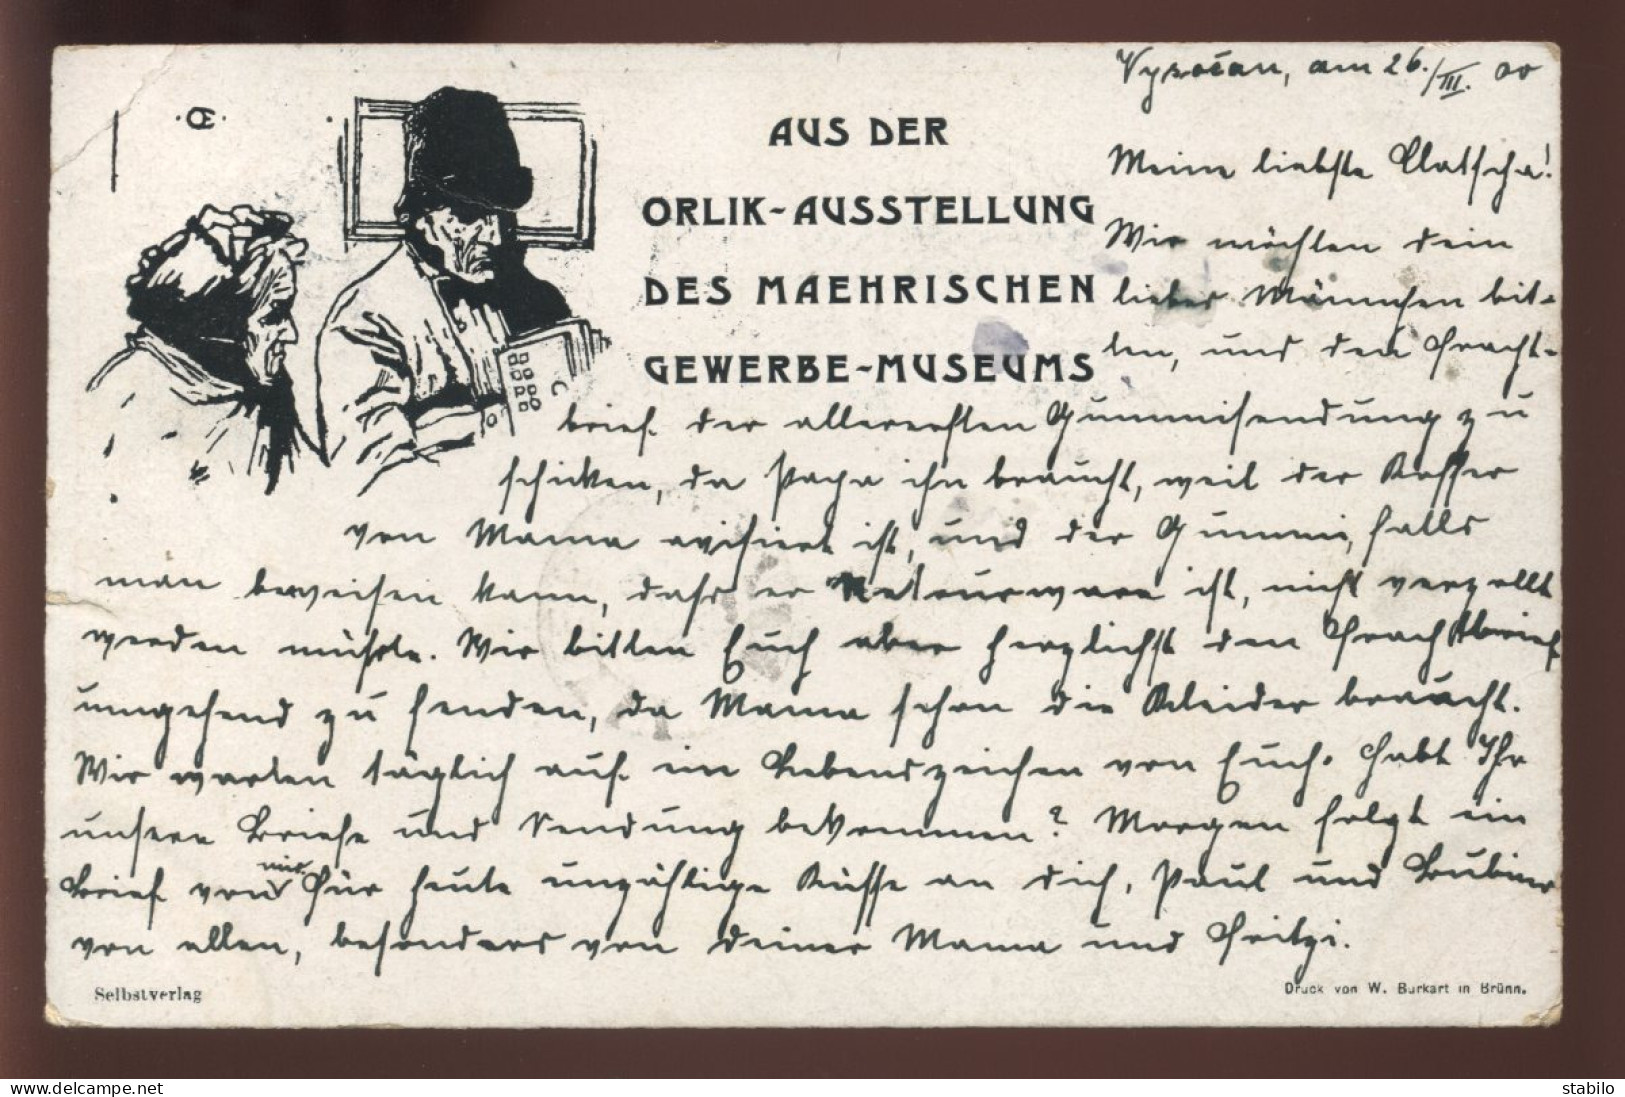 Vysočan, am 26./III. 00
AUS DER
ORLIK-AUSSTELLUNG
DES MAEHRISCHEN
GEWERBE-MUSEUMS
Meine liebste Clatscha!
Wir möchten dein
liebes Männchen bit-
ten, und den Fracht-
brief der allerersten Gummisendung zu
schicken, da Papa ihn braucht, weil der Koffer
von Mama avisiert ist, und der Gummi, falls
man beweisen kann, dass er Retourware ist, nicht verzollt
werden müsste. Wir bitten Euch aber herzlichst den Frachtbrief
umgehend zu senden, da Mama schon die Kleider braucht.
Wir warten täglich auf ein Lebenszeichen von Euch. Habt Ihr
unsere Briefe und Sendung bekommen? Morgen folgt ein
Brief von mir. Für heute unzählige Küsse an dich, Paul und
von allen, besonders von deiner Mama und Fritzi.
Selbstverlag
Druck von W. Burkart in Brünn.
stabilo
www.delcampe.net